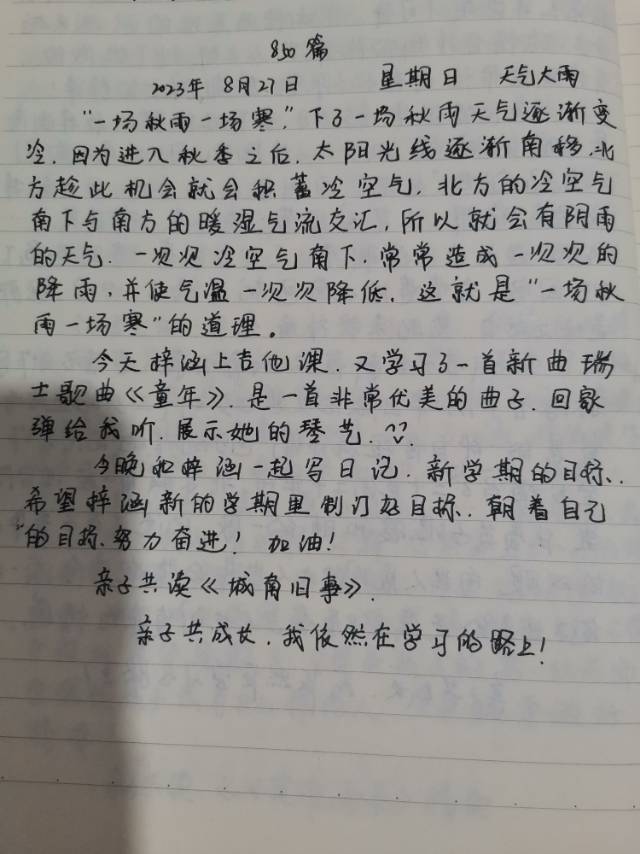 850篇
2023年 8月27日 星期日 天气大雨
"一场秋雨一场寒",下了一场秋雨天气逐渐变
冷,因为进入秋季之后,太阳光线逐渐南移,北
方趁此机会就会积蓄冷空气,北方的冷空气
南下与南方的暖湿气流交汇,所以就会有阴雨
的天气.一次次冷空气南下,常常造成一次次的
降雨,并使气温一次次降低,这就是"一场秋
雨一场寒"的道理。
今天梓涵上吉他课,又学习了一首新曲瑞
士歌曲《童年》.是一首非常优美的曲子.回家
弹给我听.展示她的琴艺.
今晚和梓涵一起写日记.新学期的目标.
希望梓涵新的学期里制订好目标.朝着自己
的目标、努力奋进!加油!
亲子共读《城南旧事》.
亲子共成长.我依然在学习的路上!